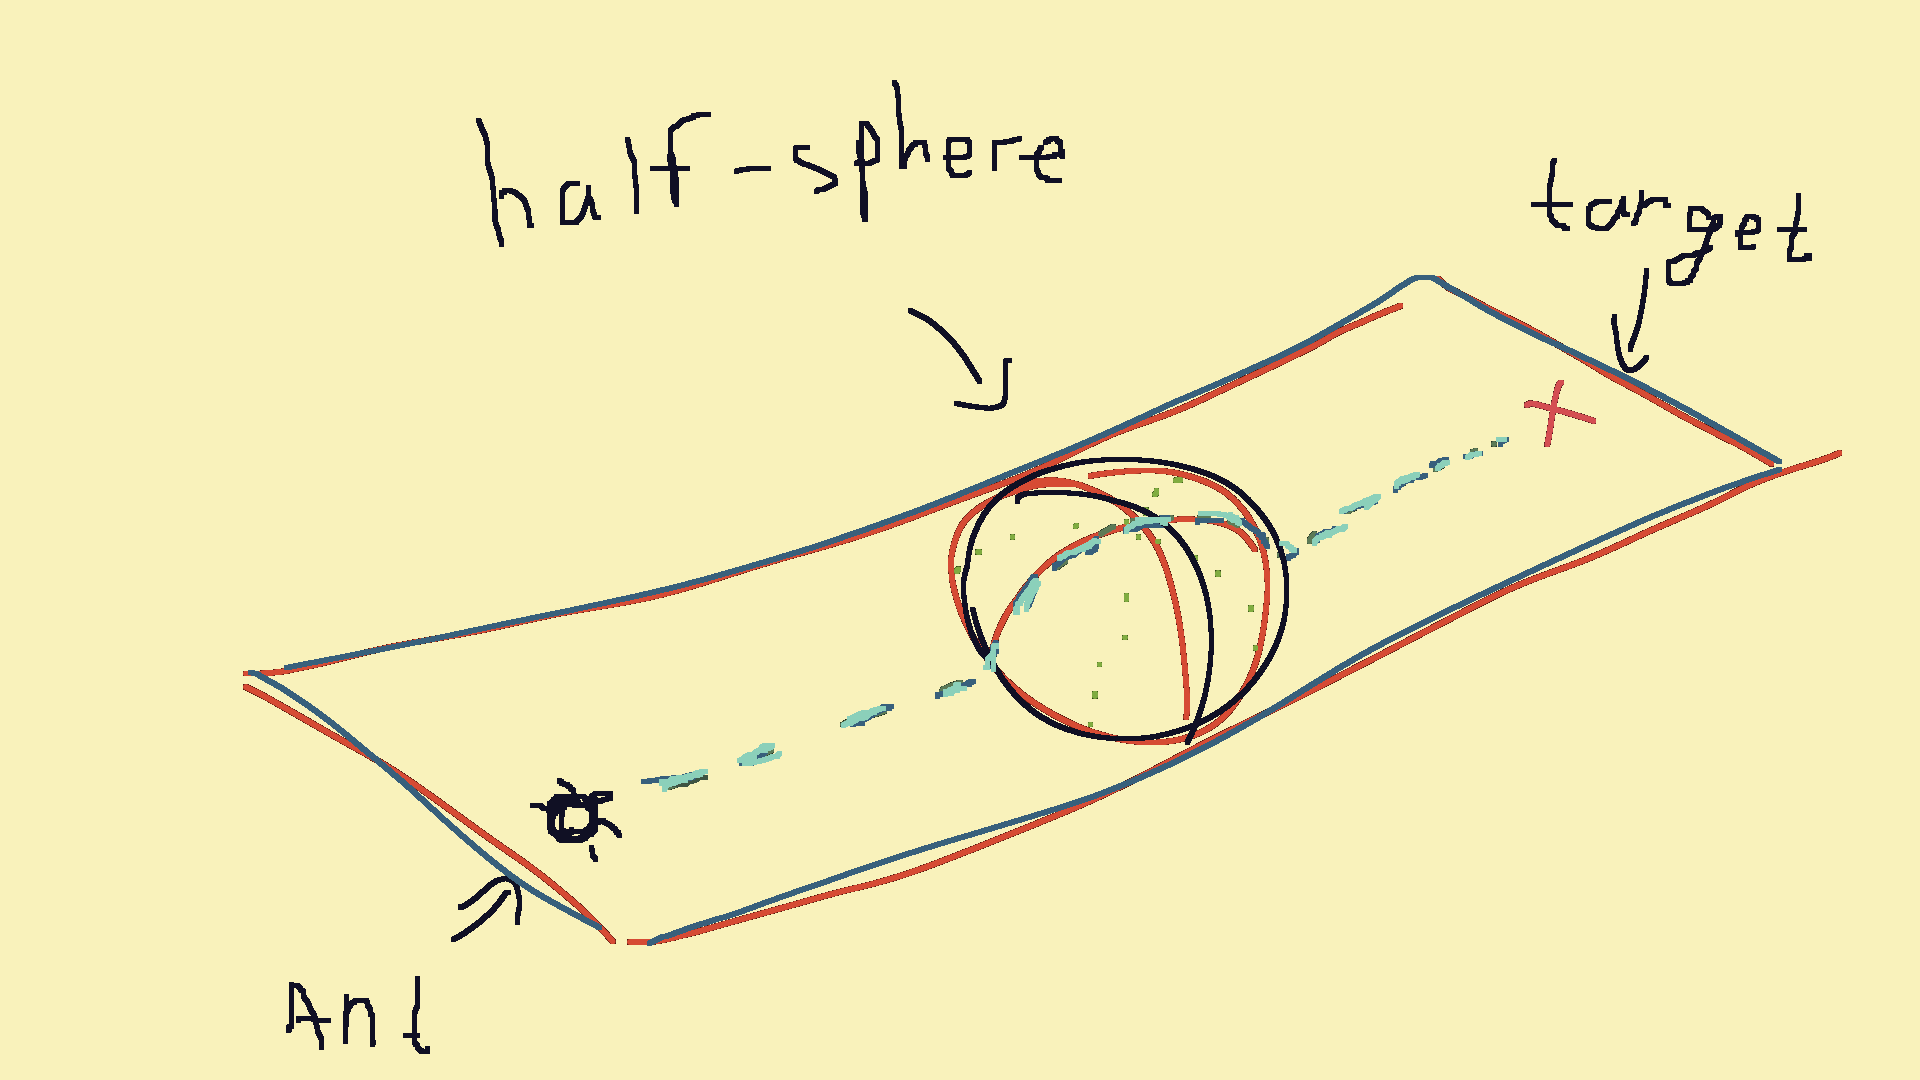 half-sphere
target
Ant